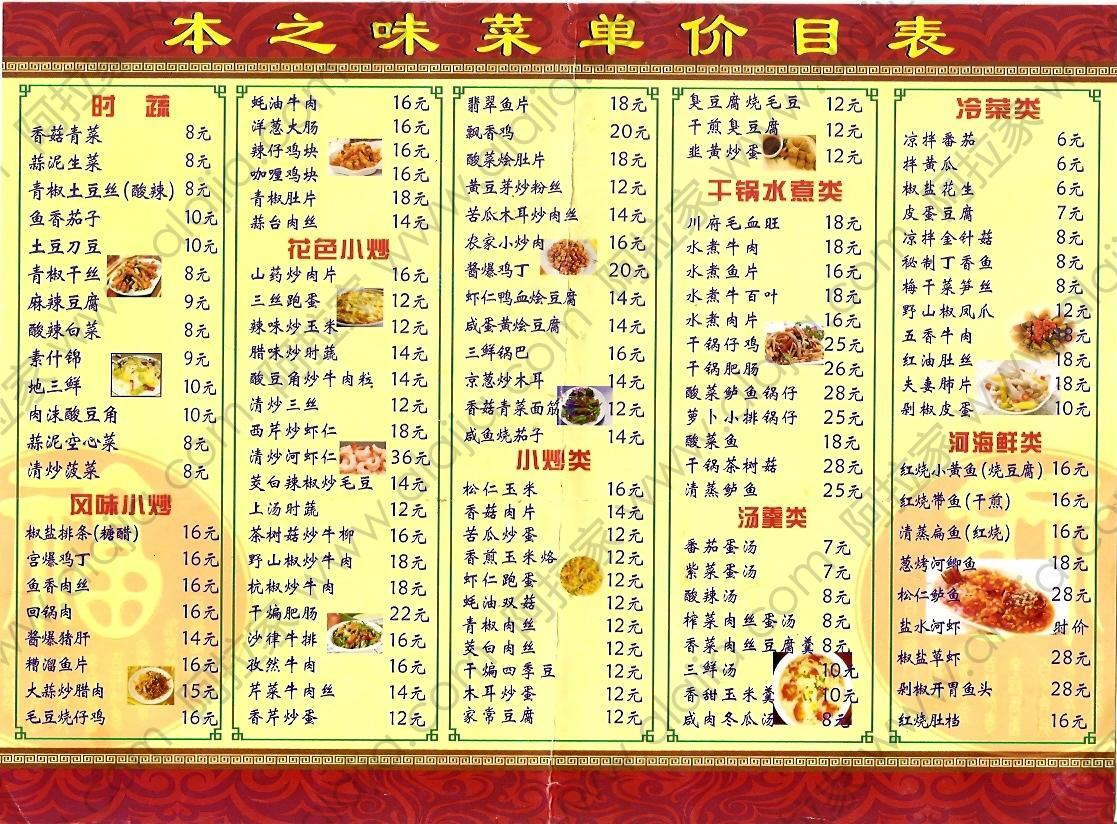 本之味菜单价目表
时 蔬
香菇青菜 8元
蒜泥生菜 8元
青椒土豆丝(酸辣) 8元
鱼香茄子 10元
土豆刀豆 10元
青椒干丝 8元
麻辣豆腐 9元
酸辣白菜 8元
素什锦 9元
地三鲜 10元
肉沫酸豆角 10元
蒜泥空心菜 8元
清炒菠菜 8元
风味小炒
椒盐排条(糖醋) 16元
宫爆鸡丁 16元
鱼香肉丝 16元
回锅肉 16元
酱爆猪肝 14元
糟溜鱼片 16元
大蒜炒腊肉 15元
毛豆烧仔鸡 16元
蚝油牛肉 16元
洋葱大肠 16元
辣仔鸡块 16元
咖喱鸡块 16元
青椒肚片 18元
蒜台肉丝 14元
花色小炒
山药炒肉片 16元
三丝跑蛋 12元
辣味炒玉米 12元
腊味炒时蔬 14元
酸豆角炒牛肉粒 14元
清炒三丝 12元
西芹炒虾仁 18元
清炒河虾仁 36元
茭白辣椒炒毛豆 14元
上汤时蔬 12元
茶树菇炒牛柳 16元
野山椒炒牛肉 18元
杭椒炒牛肉 18元
干煸肥肠 22元
沙律牛排 16元
孜然牛肉 16元
芹菜牛肉丝 14元
香芹炒蛋 12元
翡翠鱼片 18元
飘香鸡 20元
酸菜烩肚片 18元
黄豆芽炒粉丝 12元
苦瓜木耳炒肉丝 14元
农家小炒肉 16元
酱爆鸡丁 20元
虾仁鸭血烩豆腐 14元
咸蛋黄烩豆腐 14元
三鲜锅巴 16元
京葱炒木耳 14元
香菇青菜面筋 12元
咸鱼烧茄子 14元
小炒类
松仁玉米 16元
香菇肉片 14元
苦瓜炒蛋 12元
香煎玉米烙 12元
虾仁跑蛋 12元
蚝油双菇 12元
青椒肉丝 12元
茭白肉丝 12元
干煸四季豆 12元
木耳炒蛋 12元
家常豆腐 12元
臭豆腐烧毛豆 12元
干煎臭豆腐 12元
韭黄炒蛋 12元
干锅水煮类
川府毛血旺 18元
水煮牛肉 18元
水煮鱼片 16元
水煮牛百叶 18元
水煮肉片 16元
干锅仔鸡 25元
干锅肥肠 26元
酸菜鲈鱼锅仔 28元
萝卜小排锅仔 25元
酸菜鱼 18元
干锅茶树菇 28元
清蒸鲈鱼 25元
汤羹类
番茄蛋汤 7元
紫菜蛋汤 7元
酸辣汤 8元
榨菜肉丝蛋汤 8元
香菜肉丝豆腐羹 8元
三鲜汤 10元
香甜玉米羹 10元
咸肉冬瓜汤 8元
冷菜类
凉拌番茄 6元
拌黄瓜 6元
椒盐花生 6元
皮蛋豆腐 7元
凉拌金针菇 8元
秘制丁香鱼 8元
梅干菜笋丝 8元
野山椒凤爪 12元
五香牛肉 18元
红油肚丝 18元
夫妻肺片 18元
剁椒皮蛋 10元
河海鲜类
红烧小黄鱼(烧豆腐) 16元
红烧带鱼(干煎) 16元
清蒸扁鱼(红烧) 16元
葱烤河鲫鱼 18元
松仁鲈鱼 28元
盐水河虾 时价
椒盐草虾 28元
剁椒开胃鱼头 28元
红烧肚档 16元